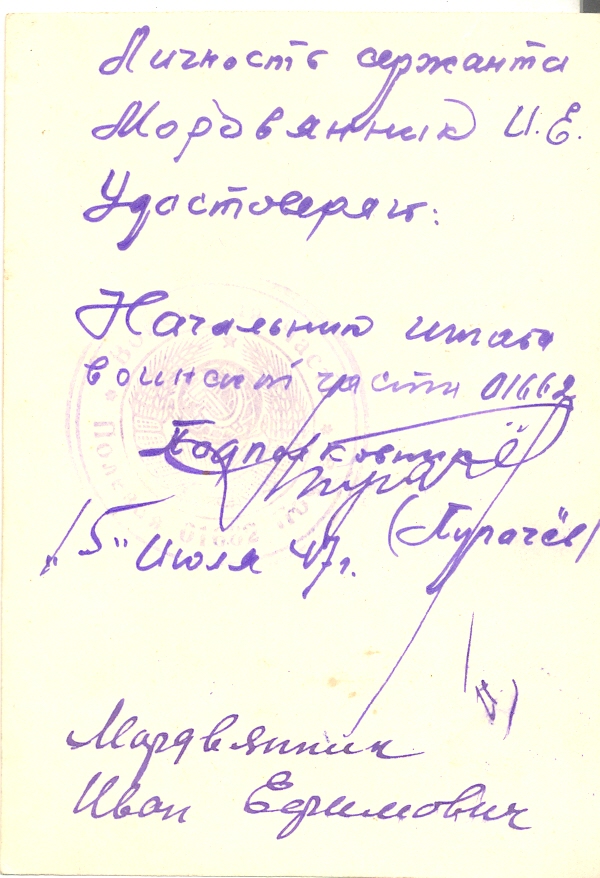 Личность сержанта
Мордвянник И.Е.
Удостоверяю:
Начальник штаба
воинской части 01662
Подполковник
(Пугачёв)
"15" Июля 47г.
Мордвянник
Иван Ефимович